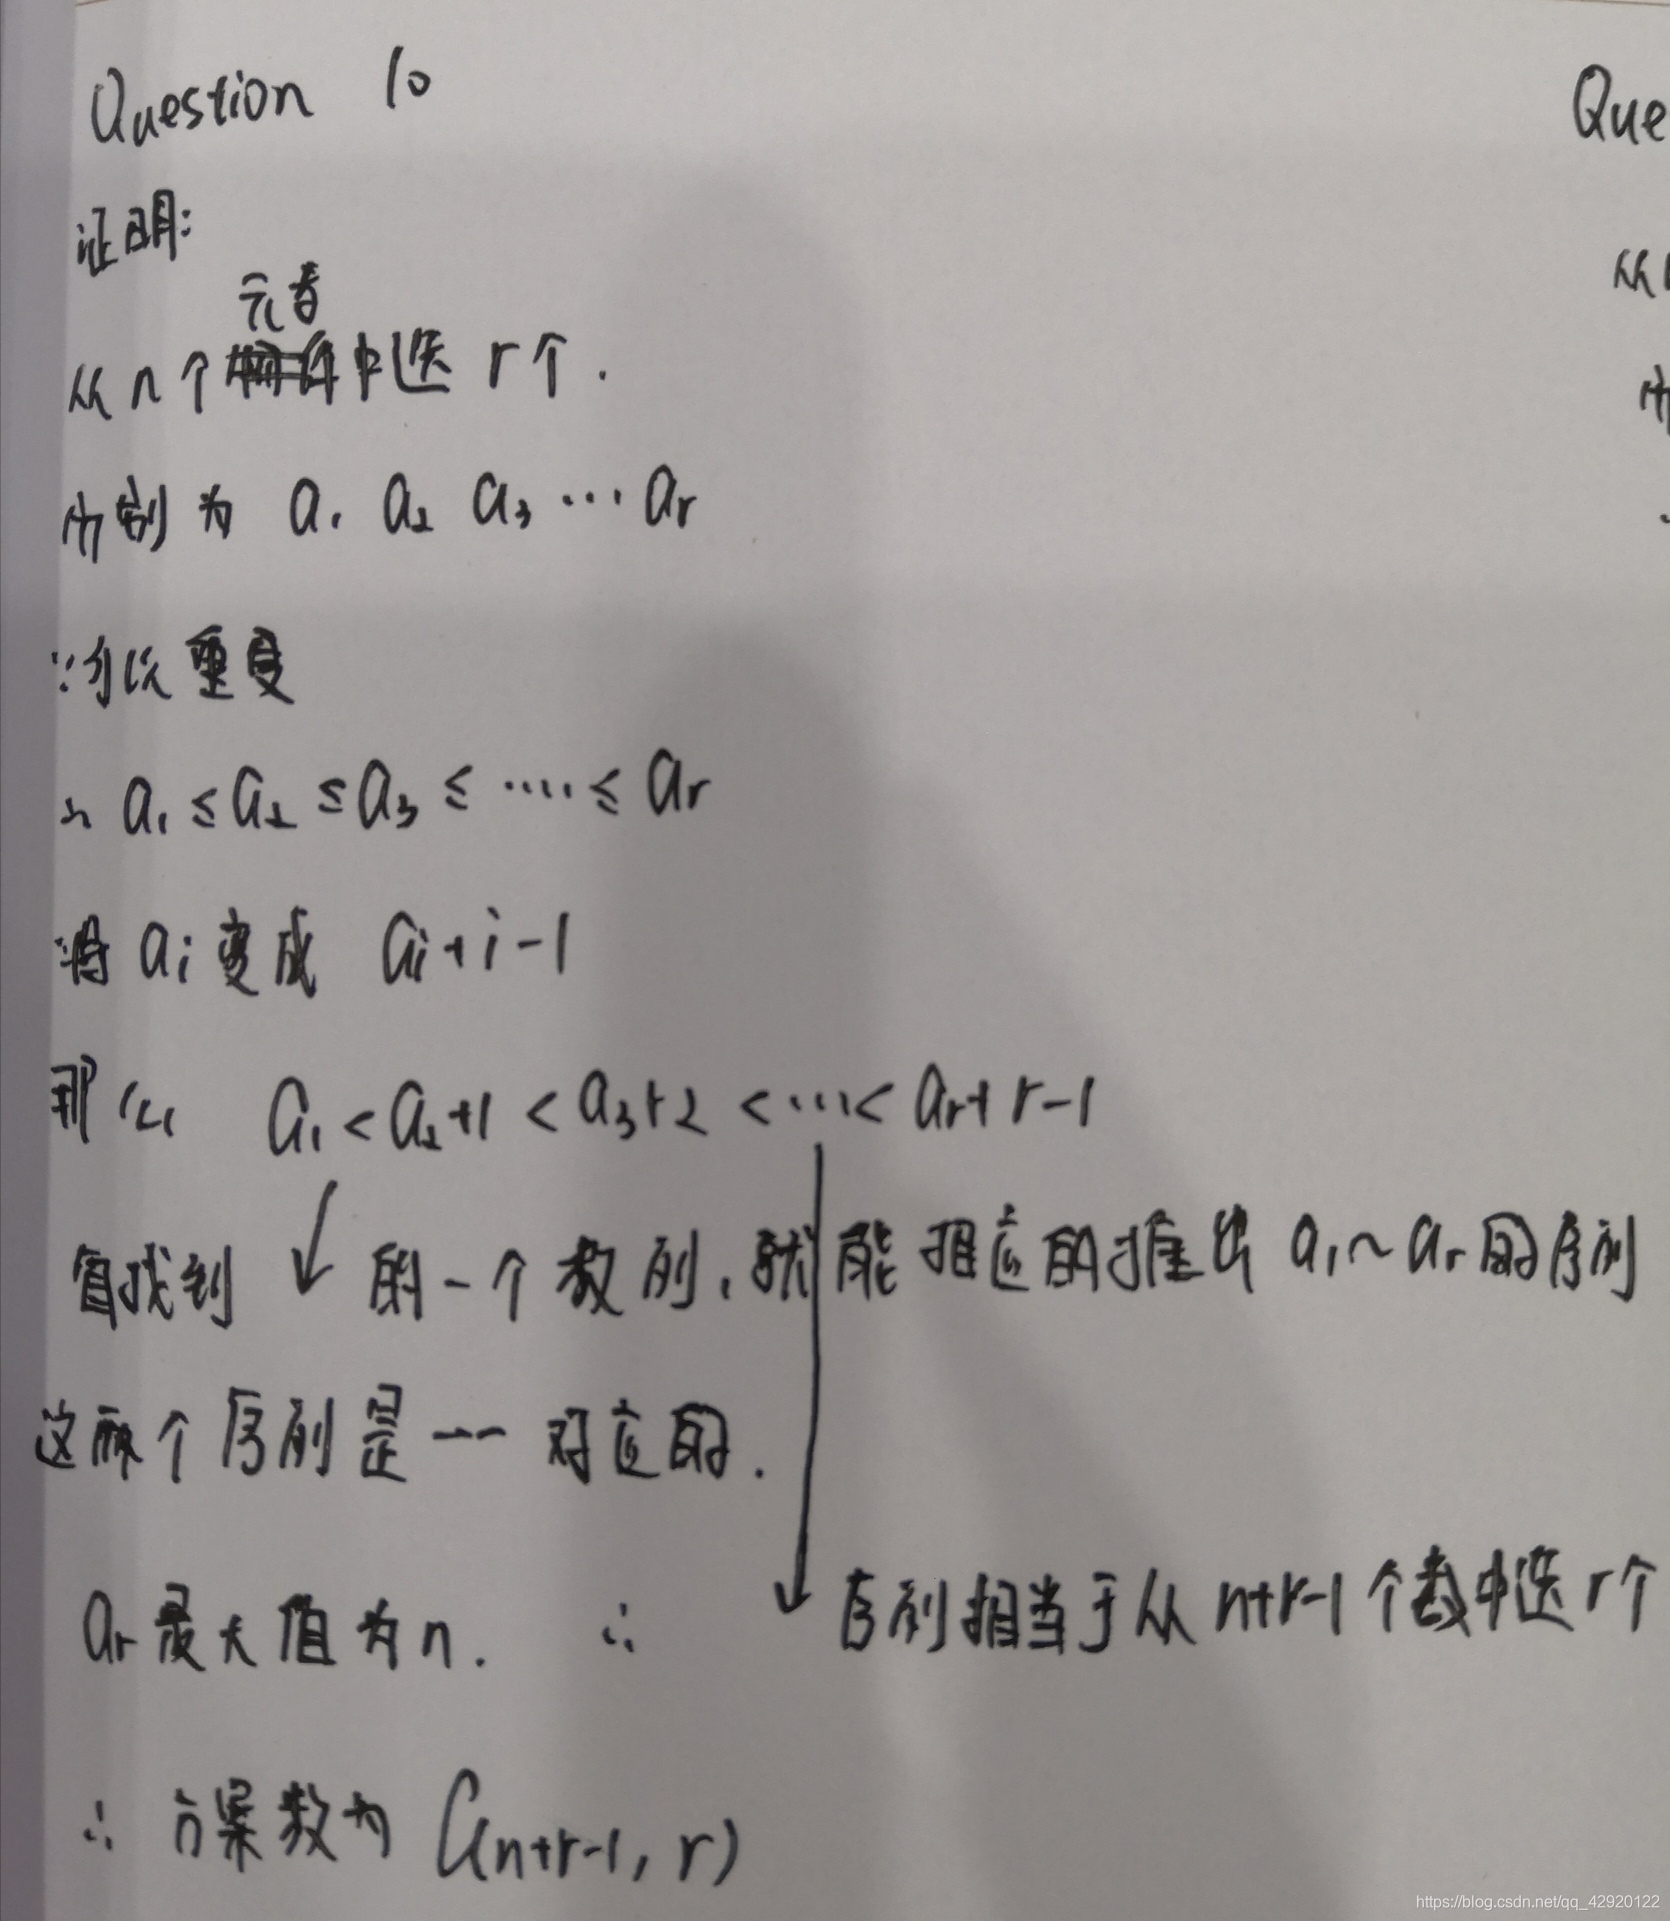 Question 10
证明:
元素
从 n 个 中选 r 个.
分别为 a₁ a₂ a₃ … ar
∵可以重复
∴ a₁ ≤ a₂ ≤ a₃ ≤ ····· ≤ ar
将 ai 变成 ai+i-1
那么 a₁ < a₂+1 < a₃+2 < ··· < ar+r-1
每找到 ↓ 的一个数列,就能相应的推出 a₁~ar的序列
这两个序列是一一对应的.
ar最大值为n. ∴ 序列相当于从 n+r-1 个数中选 r个
∴ 方案数为 C(n+r-1, r)
Que
从
https://blog.csdn.net/qq_42920122